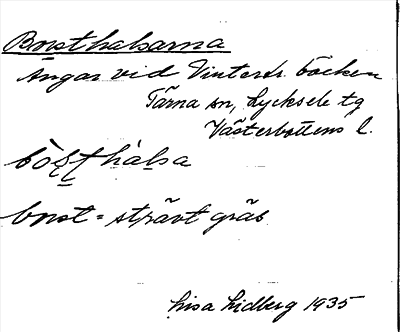 Borsthalsarna
Ängar vid Vinterdr. böcken
Tärna sn, Lycksele tg
Västerbottens l.
hàlsa
borst = strävt gräs
Lisa Lidberg 1935